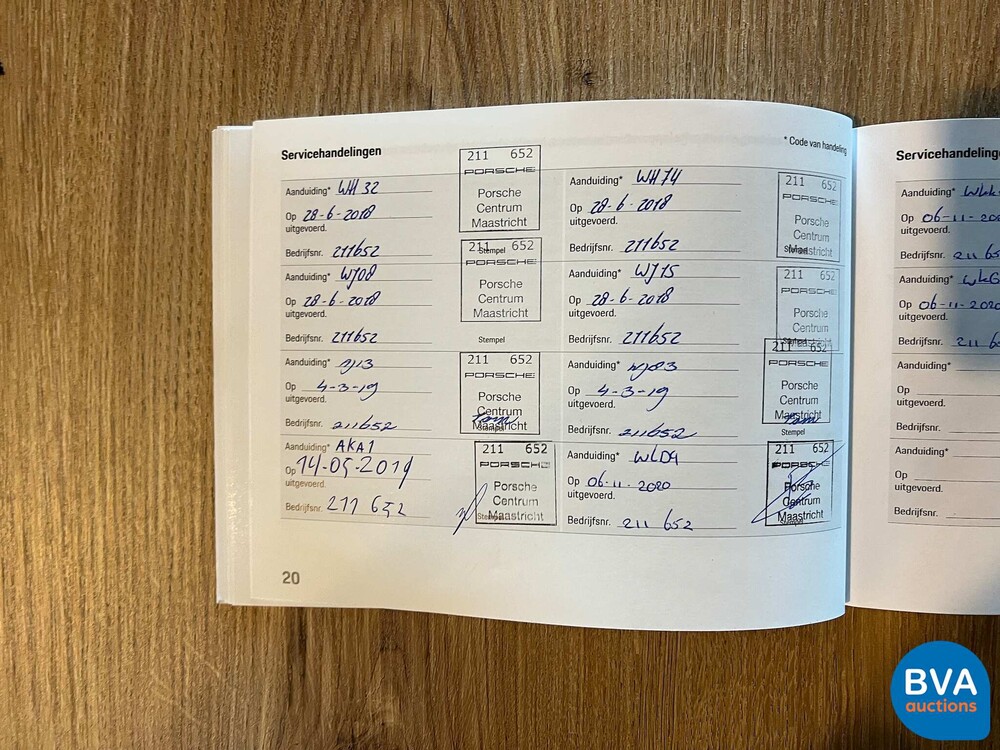 Servicehandelingen
* Code van handeling
Aanduiding* WH 32
Op 28-6-2018
uitgevoerd.
Bedrijfsnr. 211652
211 652
PORSCHE
Porsche
Centrum
Maastricht
Stempel
Aanduiding* WH74
Op 28-6-2018
uitgevoerd.
Bedrijfsnr. 211652
211 652
PORSCHE
Porsche
Centrum
Maastricht
Stempel
Aanduiding* WJ08
Op 28-6-2018
uitgevoerd.
Bedrijfsnr. 211652
211 652
PORSCHE
Porsche
Centrum
Maastricht
Stempel
Aanduiding* WJ15
Op 28-6-2018
uitgevoerd.
Bedrijfsnr. 211652
211 652
PORSCHE
Porsche
Centrum
Maastricht
Stempel
Aanduiding*
Op 4-3-19
uitgevoerd.
Bedrijfsnr. 211652
211 652
PORSCHE
Porsche
Centrum
Maastricht
Stempel
Aanduiding*
Op 4-3-19
uitgevoerd.
Bedrijfsnr. 211652
211 652
PORSCHE
Porsche
Centrum
Maastricht
Stempel
Aanduiding* AKA1
Op 14-05-2019
uitgevoerd.
Bedrijfsnr. 211 652
211 652
PORSCHE
Porsche
Centrum
Maastricht
Stempel
Aanduiding* WLD9
Op 06-11-2020
uitgevoerd.
Bedrijfsnr. 211 652
211 652
PORSCHE
Porsche
Centrum
Maastricht
Stempel
20
Servicehandeling
Aanduiding*
Op 06-11-202
uitgevoerd.
Bedrijfsnr. 211 65
Aanduiding*
Op 06-11-2020
uitgevoerd.
Bedrijfsnr. 211 6
Aanduiding*
Op
uitgevoerd.
Bedrijfsnr.
Aanduiding*
Op
uitgevoerd.
Bedrijfsnr.
BVA
auctions